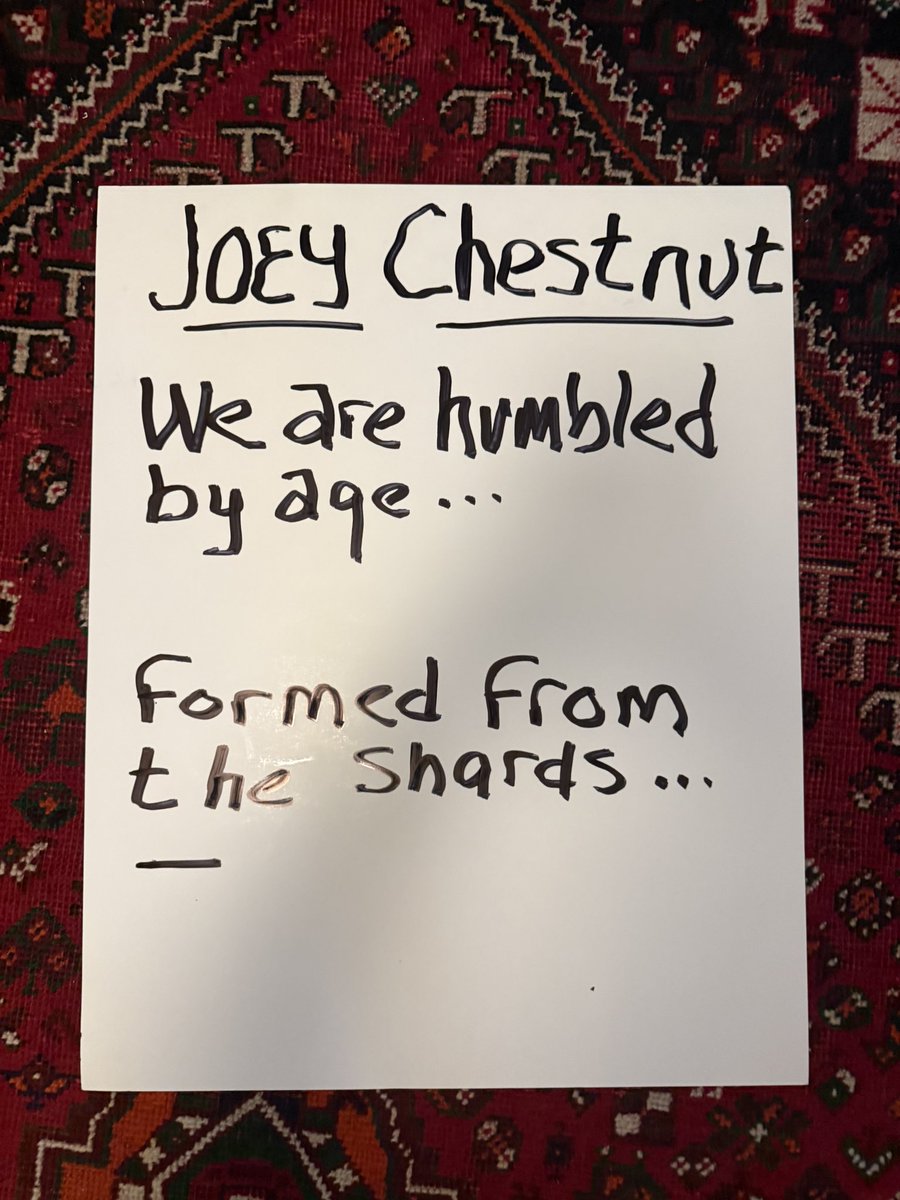 JOEY Chestnut
We are humbled
by age...
Formed From
the Shards...